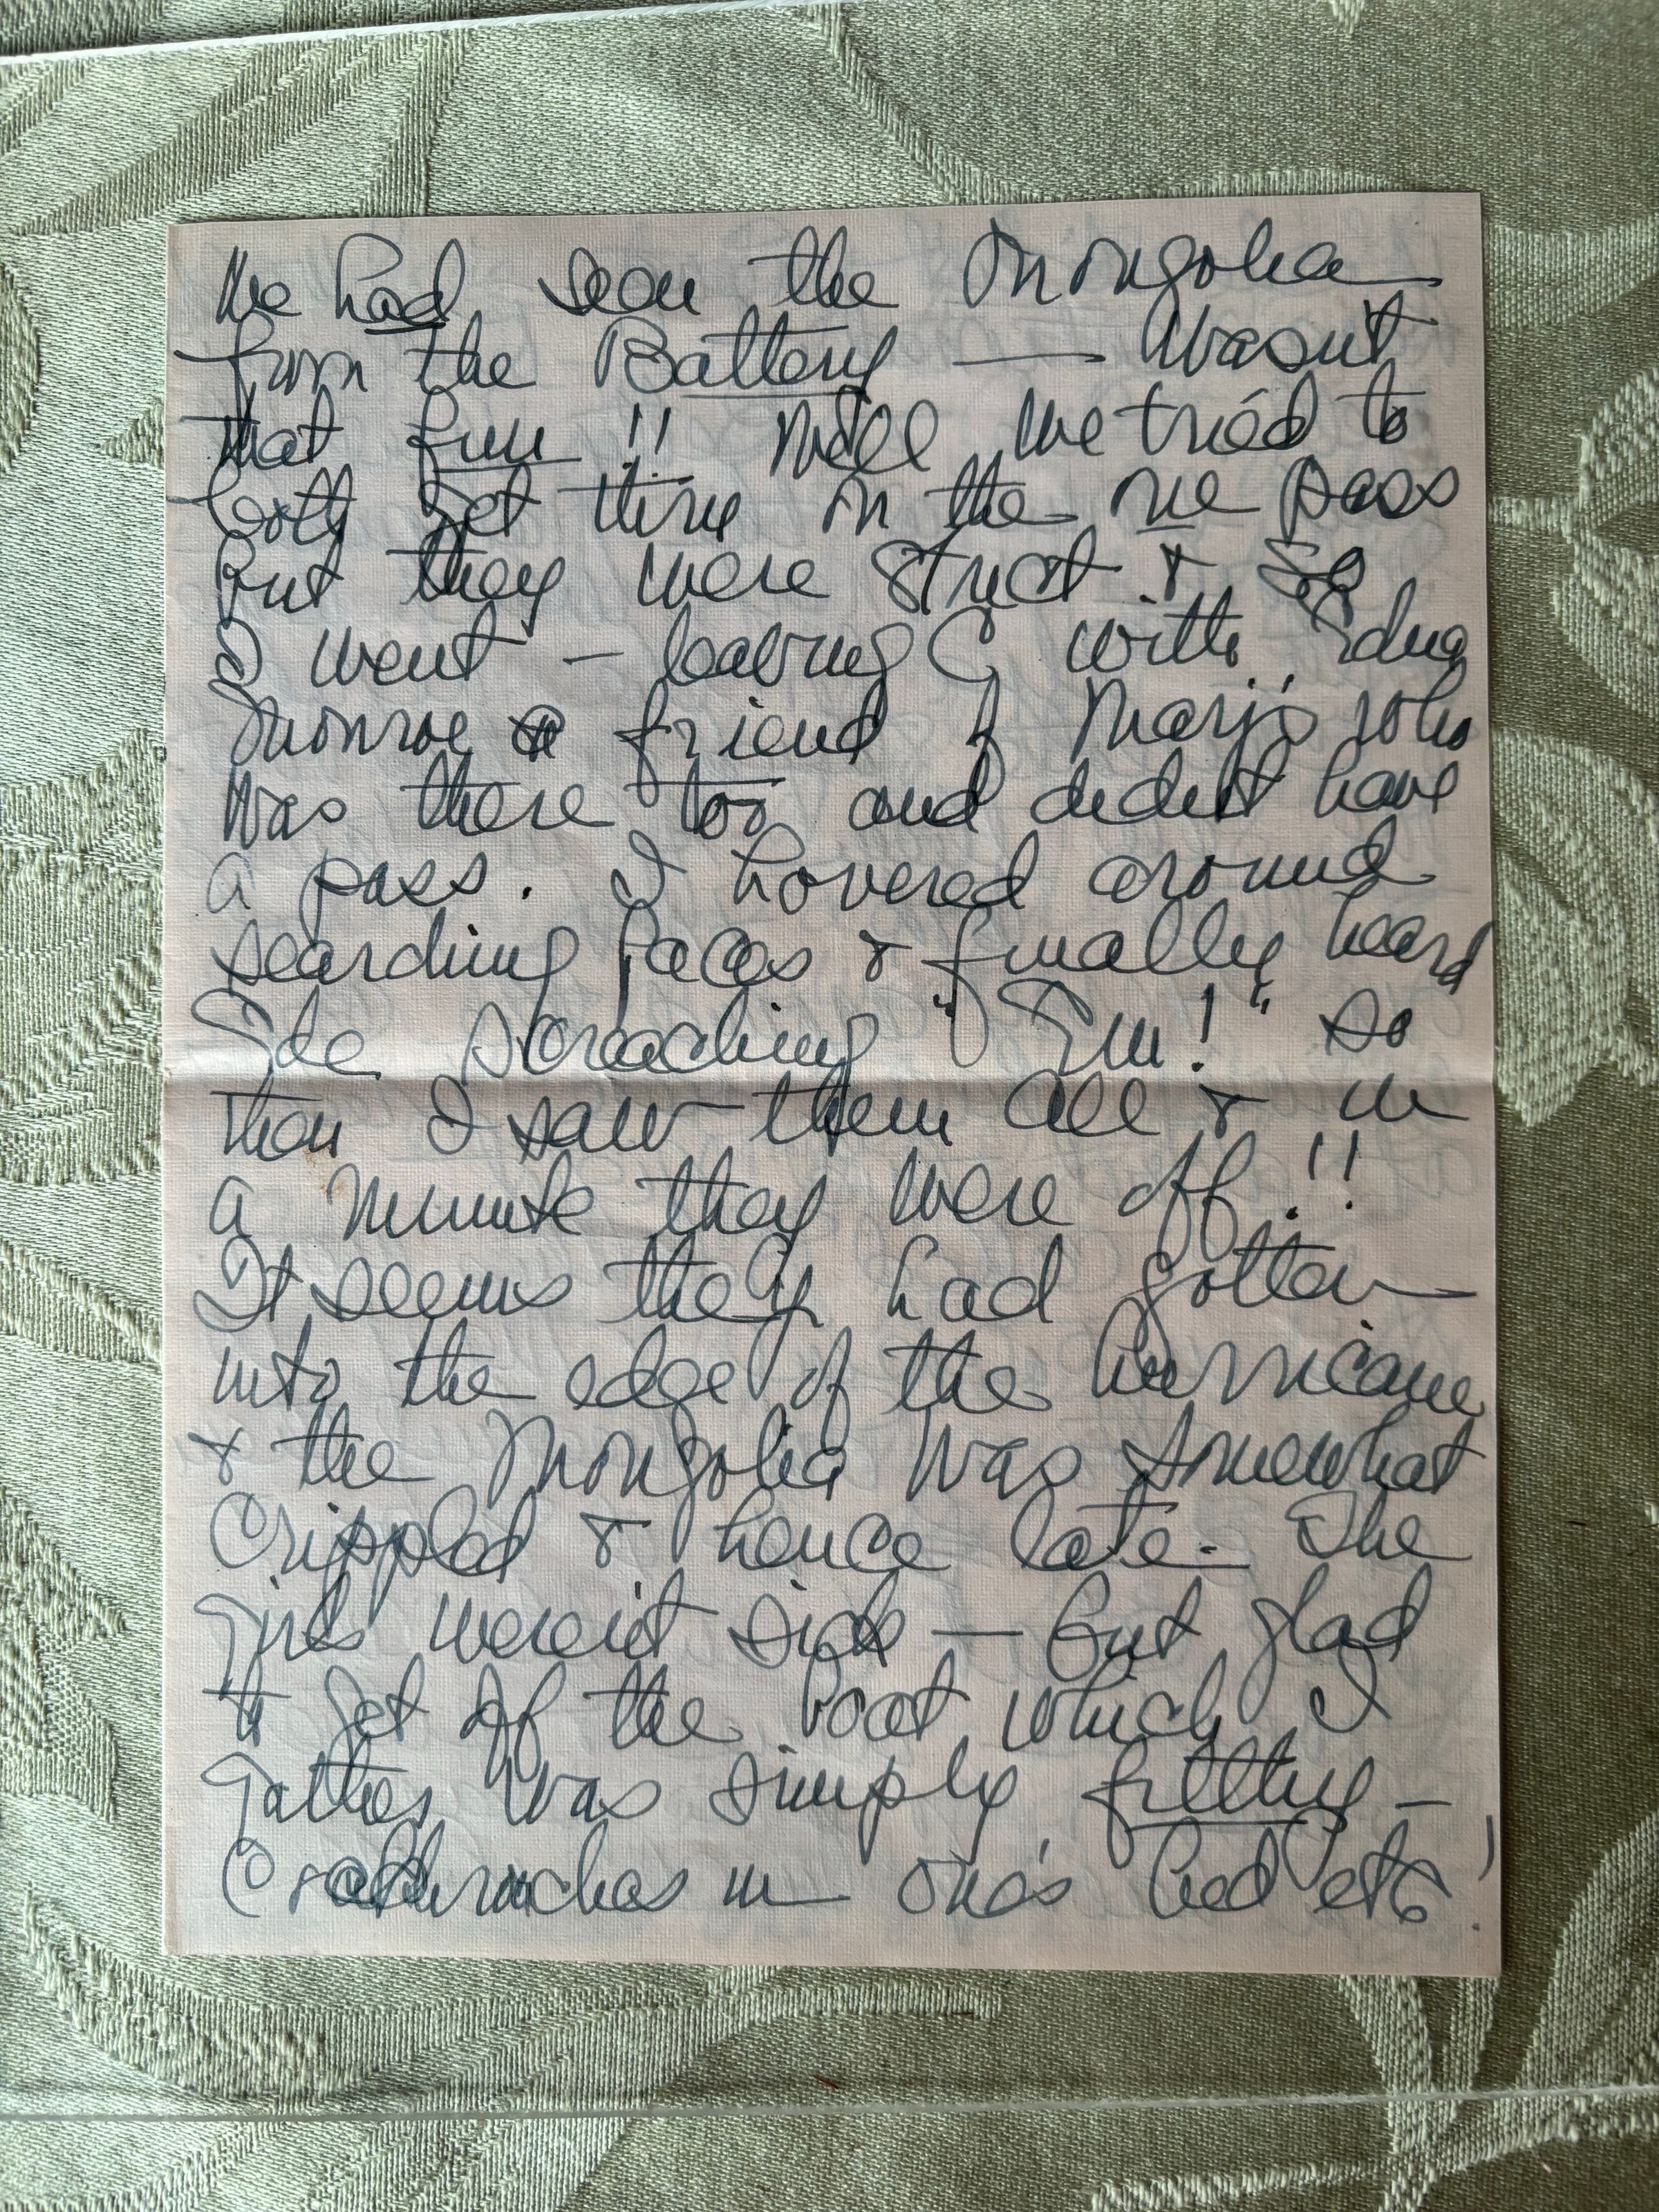 We had seen the Mongolia
from the Battery — Wasn't
that fun!! Well we tried to
both get thru on the one pass
but they were strict & so
I went — leaving C with Edna
Monroe a friend of Marj's who
was there too and didn't have
a pass. I hovered around
searching faces & finally heard
Ede screaching "Em!" so
then I saw them all & in
a minute they were off!!
It seems they had gotten
into the edge of the hurricane
& the Mongolia was somewhat
crippled & hence late. The
girls weren't sick — but glad
to get off the boat which I
gather was simply filthy —
Cockroaches in one's bed etc!